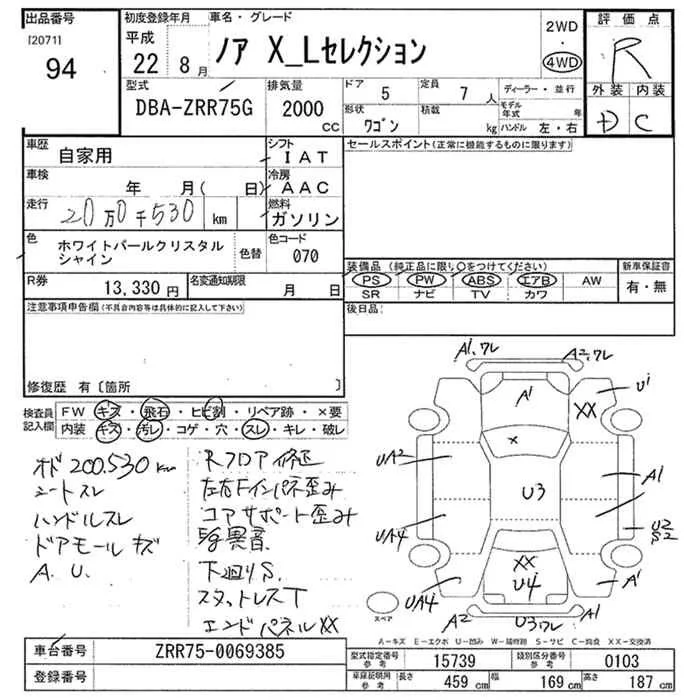 出品番号
[2071]
94
初度登録年月
平成
22 8 月
車名・グレード
ノア X_Lセレクション
2WD
・
4WD
評価点
R
外装 内装
D C
型式
DBA-ZRR75G
排気量
2000
CC
ドア
5
定員
7 人
形状
ワゴン
積載
kg
ディーラー・並行
モデル
年式 年
ハンドル 左・右
車歴
自家用
シフト
IAT
車検
年 月( 日)
冷房
AAC
走行
20万0千530 km
燃料
ガソリン
色
ホワイトパールクリスタル
シャイン
色替
色コード
070
R券
13,330 円
名変通知期限
月 日
セールスポイント(正常に機能するものに限ります)
装備品 (純正品に限り○をつけてください)
PS PW ABS エアB AW
SR ナビ TV カワ
新車保証書
有・無
後日品:
注意事項申告欄(不具合内容等は具体的に記入して下さい)
修復歴 有〔箇所 〕
検査員
記入欄
FW キズ・飛石・ヒビ割・リペア跡・×要
内装 キズ・汚レ・コゲ・穴・スレ・キレ・破レ
オド 200.530 km
シートスレ
ハンドルスレ
ドアモールキズ
A. U.
Rフロア修正
左右Fインパネ歪み
コアサポート歪み
異音
下廻りS.
スタットレスT
エンドパネルXX
A1,ワレ
A2,ワレ
A1
U1
XX
×
UA2
U3
A1
UA4
U2
S2
XX
U4
UA4
A1
A2
U3,ワレ
A1
スペア
A-キズ E-エクボ U-凹み W-補修跡 S-サビ C-腐食 XX-交換済
車台番号
ZRR75-0069385
登録番号
型式指定番号
参考
15739
類別区分番号
参考
0103
車庫証明用
参考
長さ
459 cm
幅
169 cm
高さ
187 cm